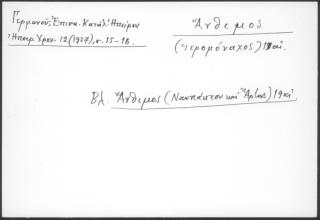 Γερμανοῦ, Ἐπισκ. Κατάλ. Ἠπείρου
Ἠπειρ. Χρον. 12 (1937), σ. 15-18.
Ἄνθιμος
(ἱερομόναχος) 19 αἰ.
Βλ. Ἄνθιμος (Ναυπάκτου καὶ Ἄρτης) 19 αἰ.